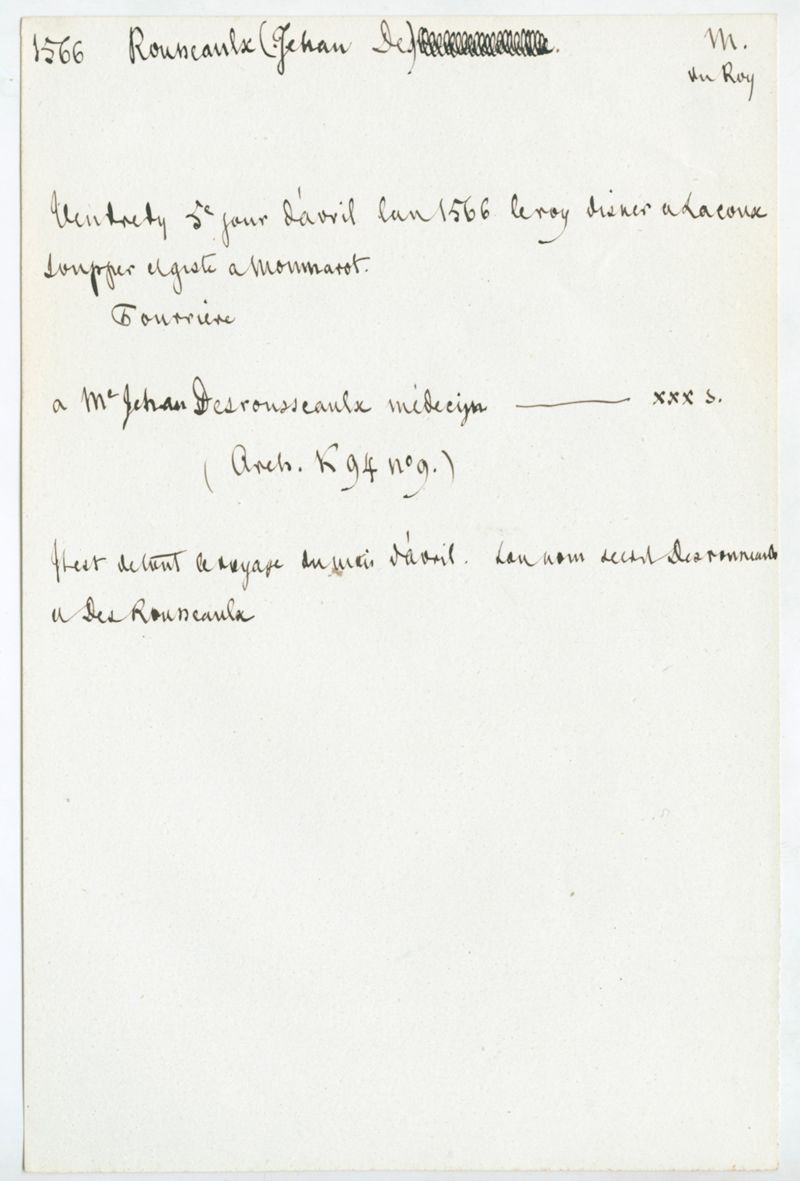 1566 Rousseaulx (Jehan Des) M.
du Roy
Vendredy 5e jour d'avril lan 1566 le roy disner a Lacoux
soupper et giste a Monmarot.
Fourrière
a Me Jehan Desrousseaulx médecyn ——— xxx s.
(Arch. K 94 no 9.)
Il est de tout le voyage du mois d'avril. Son nom s'ecrit Desrousseaulx
et Des Rousseaulx